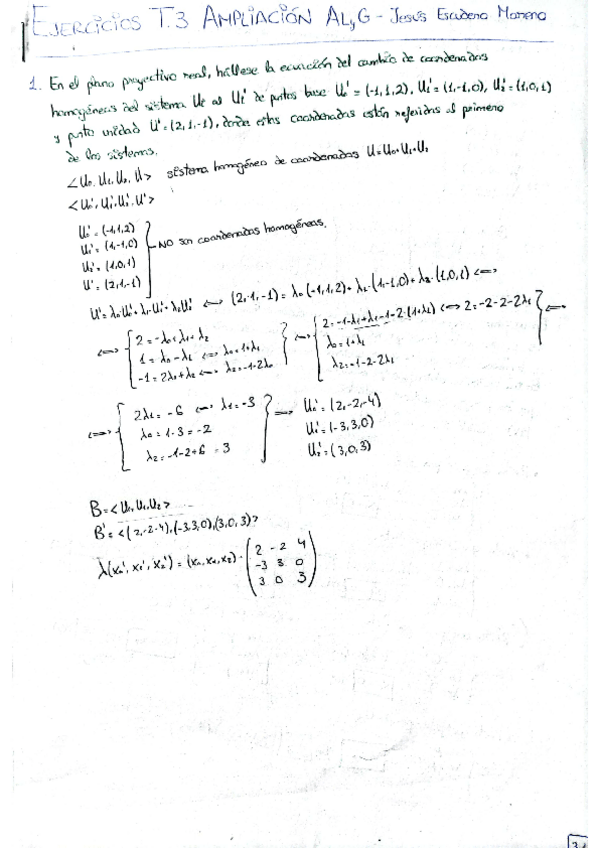 EJERCICIOS T.3 AMPLIACIÓN AL,G - Jesús Escudero Moreno
1. En el plano proyectivo real, hállese la ecuación del cambio de coordenadas
homogéneas del sistema Ui al Ui' de puntos base U₀' = (-1,1,2), U₁' = (1,-1,0), U₂' = (1,0,1)
y punto unidad U' = (2,1,-1), donde estas coordenadas están referidas al primero
de los sistemas.
<U₀, U₁, U₂, U> sistema homogéneo de coordenadas U = U₀+U₁+U₂
<U₀', U₁', U₂', U'>
U₀' = (-1,1,2)
U₁' = (1,-1,0)
U₂' = (1,0,1)
U' = (2,1,-1)
NO son coordenadas homogéneas.
U' = λ₀U₀' + λ₁U₁' + λ₂U₂' ⟺ (2,1,-1) = λ₀(-1,1,2) + λ₁·(1,-1,0) + λ₂·(1,0,1) ⟺
⟺ { 2 = -λ₀+λ₁+λ₂
1 = λ₀-λ₁ ⟺ λ₀ = 1+λ₁
-1 = 2λ₀+λ₂ ⟺ λ₂ = -1-2λ₀ }
⟺ { 2 = -1-λ₁+λ₁-1-2·(1+λ₁) ⟺ 2 = -2-2-2λ₁
λ₀ = 1+λ₁
λ₂ = -1-2-2λ₁ } ⟺
⟺ { 2λ₁ = -6 ⟺ λ₁ = -3
λ₀ = 1-3 = -2
λ₂ = -1-2+6 = 3 } ⟹
U₀' = (2,-2,-4)
U₁' = (-3,3,0)
U₂' = (3,0,3)
B = <U₀, U₁, U₂>
B' = <(2,-2-4),(-3,3,0),(3,0,3)>
λ(x₀', x₁', x₂') = (x₀,x₁,x₂)·
2 -2 4
-3 3 0
3 0 3